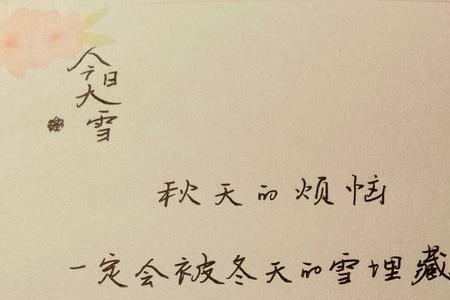 今日
大雪
秋天的烦恼
一定会被冬天的雪埋藏